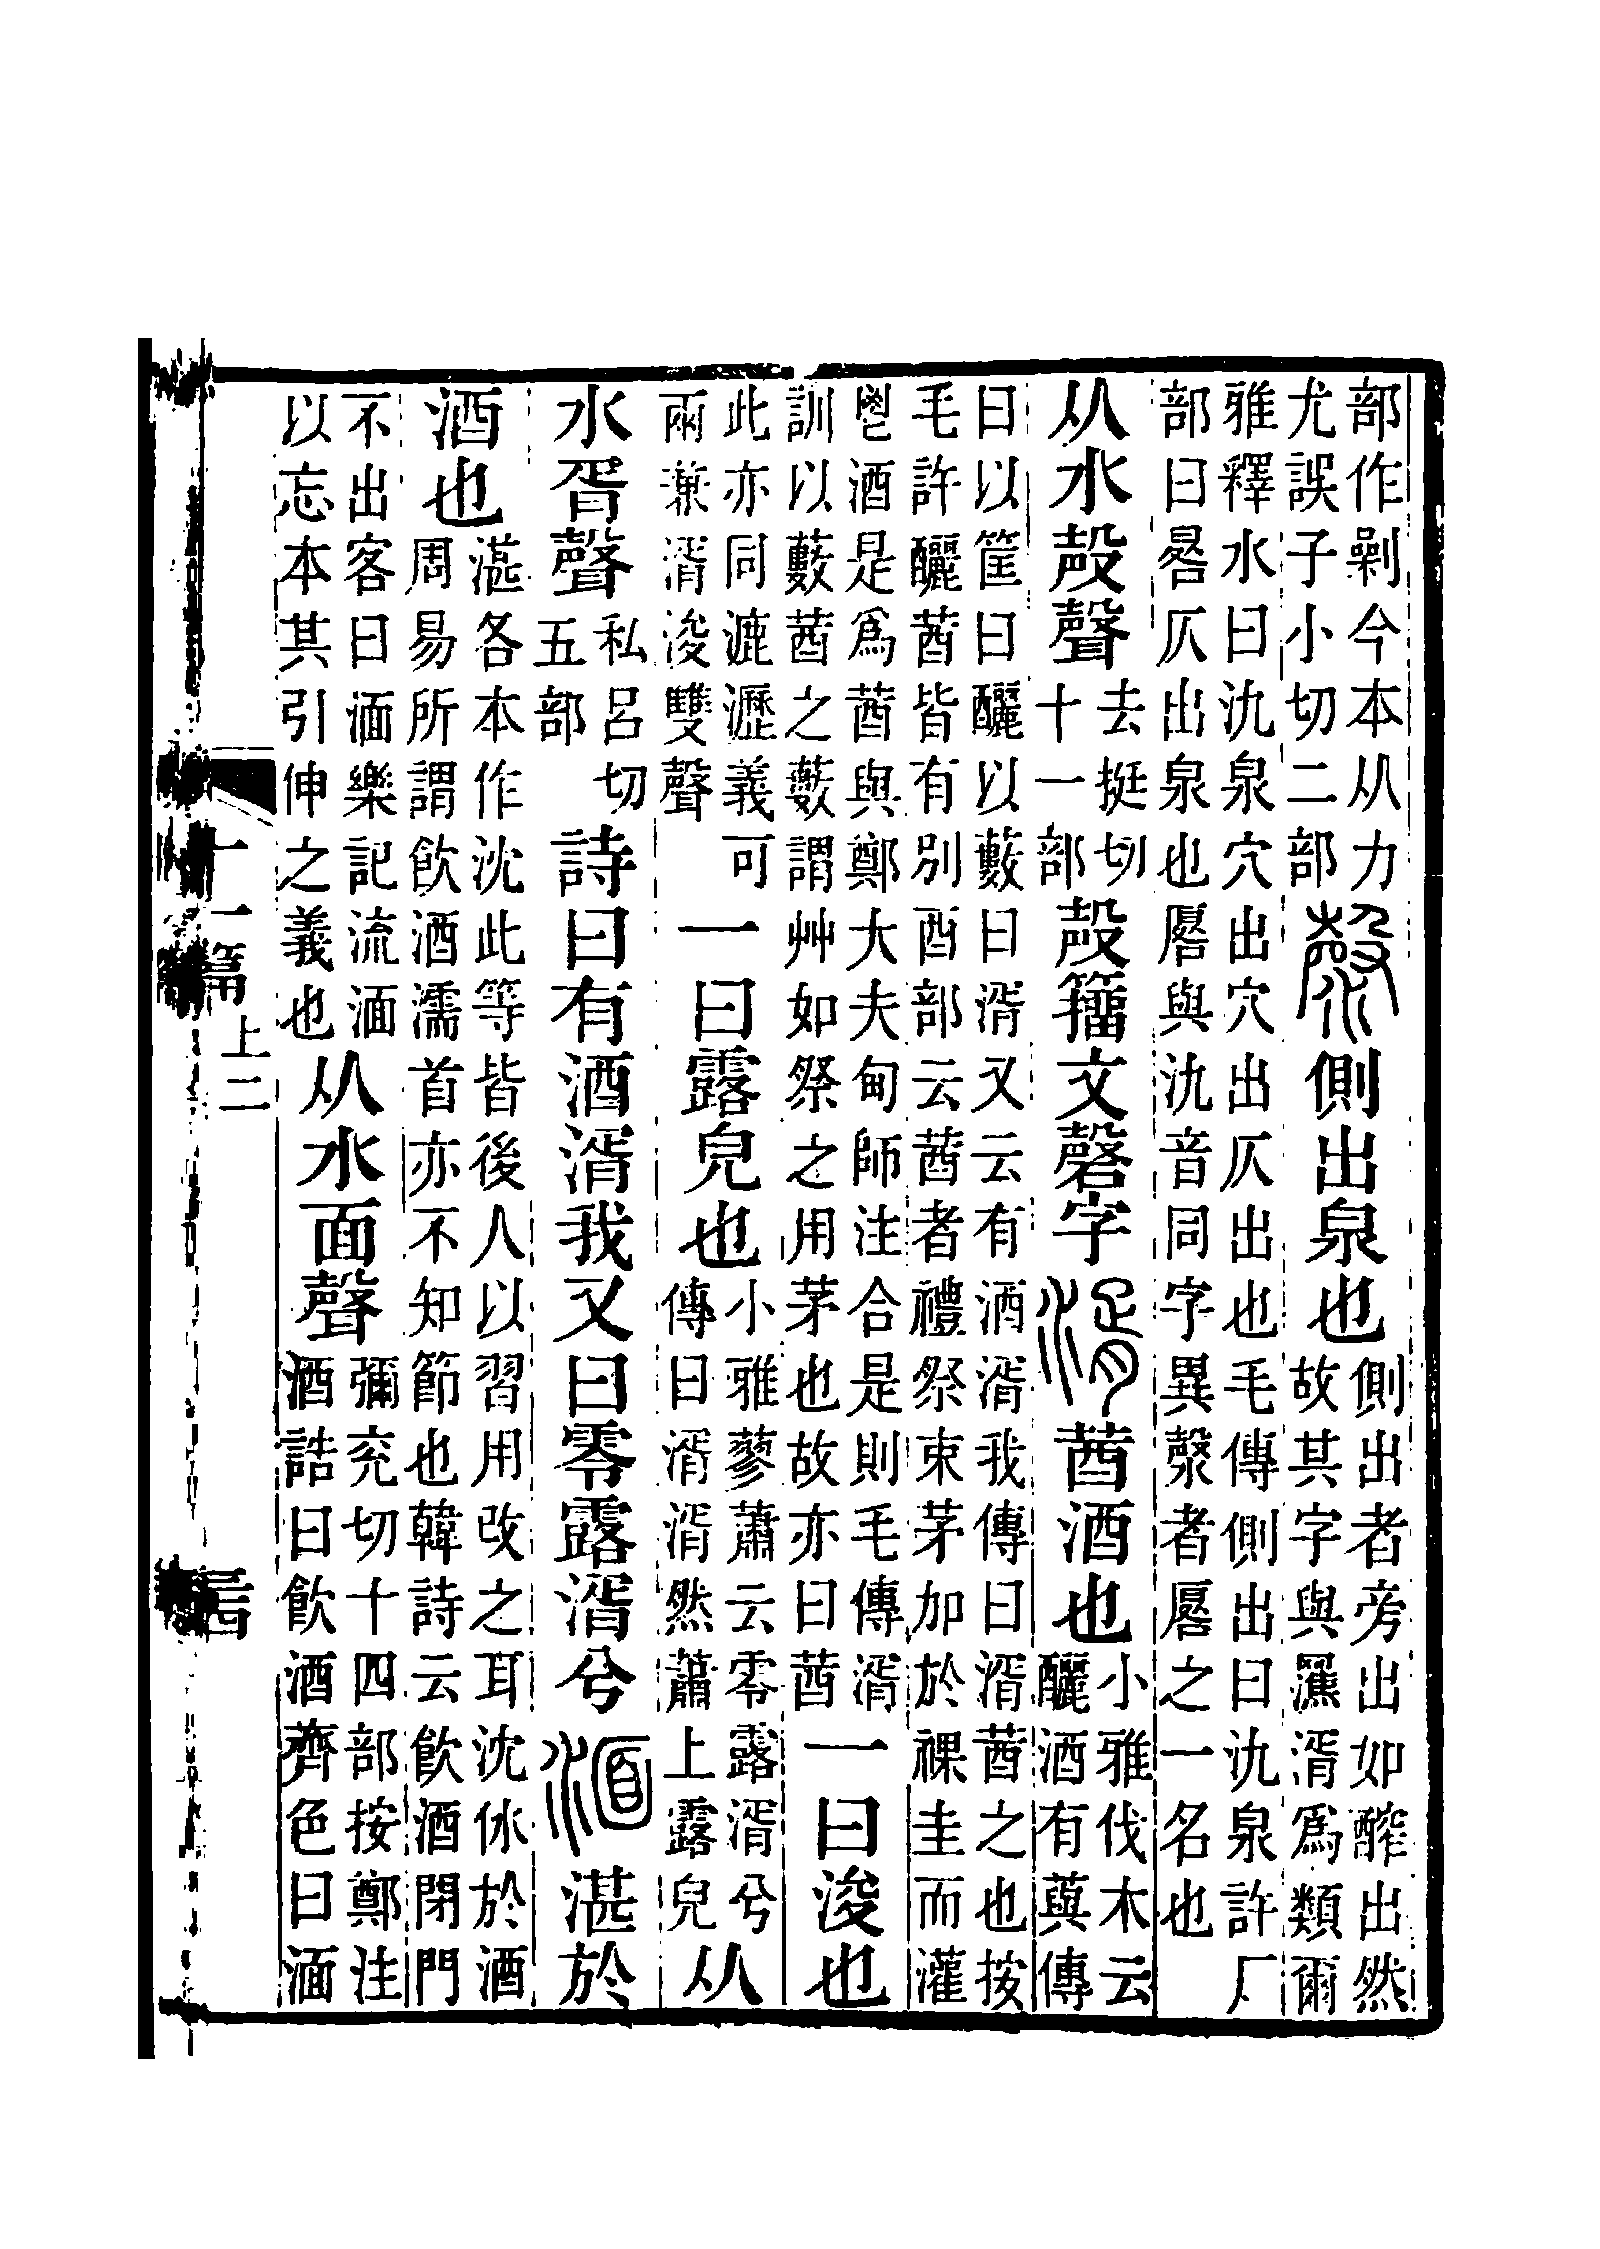 部作剝今本从力
尤誤子小切二部
漀
側出泉也
側出者旁出如醡出然
故其字與㶟湑爲類爾
雅釋水曰氿泉穴出穴出仄出也毛傳側出曰氿泉許厂
部曰晷仄出泉也厬與氿音同字異漀者厬之一名也
从水殸聲
去挺切
十一部
殸籒文磬字
湑
莤酒也
小雅伐木云
釃酒有藇傳
曰以筐曰釃以藪曰湑又云有酒湑我傳曰湑莤之也按
毛許釃莤皆有別酉部云莤者禮祭束茅加於祼圭而灌
鬯酒是爲莤與鄭大夫甸師注合是則毛傳湑
訓以藪莤之藪謂艸如祭之用茅也故亦曰莤
一曰浚也
此亦同漉瀝義可
兩兼湑浚雙聲
一曰露皃也
小雅蓼蕭云零露湑兮
傳曰湑湑然蕭上露皃
从
水胥聲
私呂切
五部
詩曰有酒湑我又曰零露湑兮
湎
湛於
酒也
湛各本作沈此等皆後人以習用改之耳沈休於酒
周易所謂飮酒濡首亦不知節也韓詩云飮酒閉門
不出客曰湎樂記流湎
以忘本其引伸之義也
从水面聲
彌兖切十四部按鄭注
酒誥曰飮酒齊色曰湎
十一篇上二